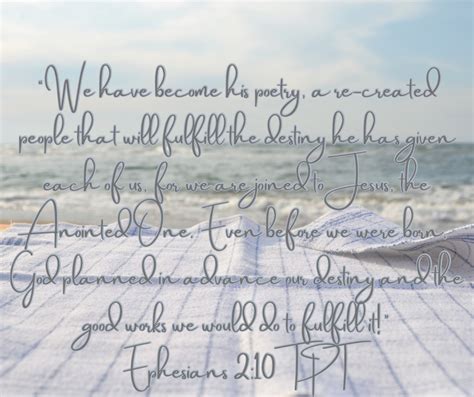 "We have become his poetry, a re-created
people that will fulfill the destiny he has given
each of us, for we are joined to Jesus, the
Anointed One. Even before we were born,
God planned in advance our destiny and the
good works we would do to fulfill it!"
Ephesians 2:10 TPT